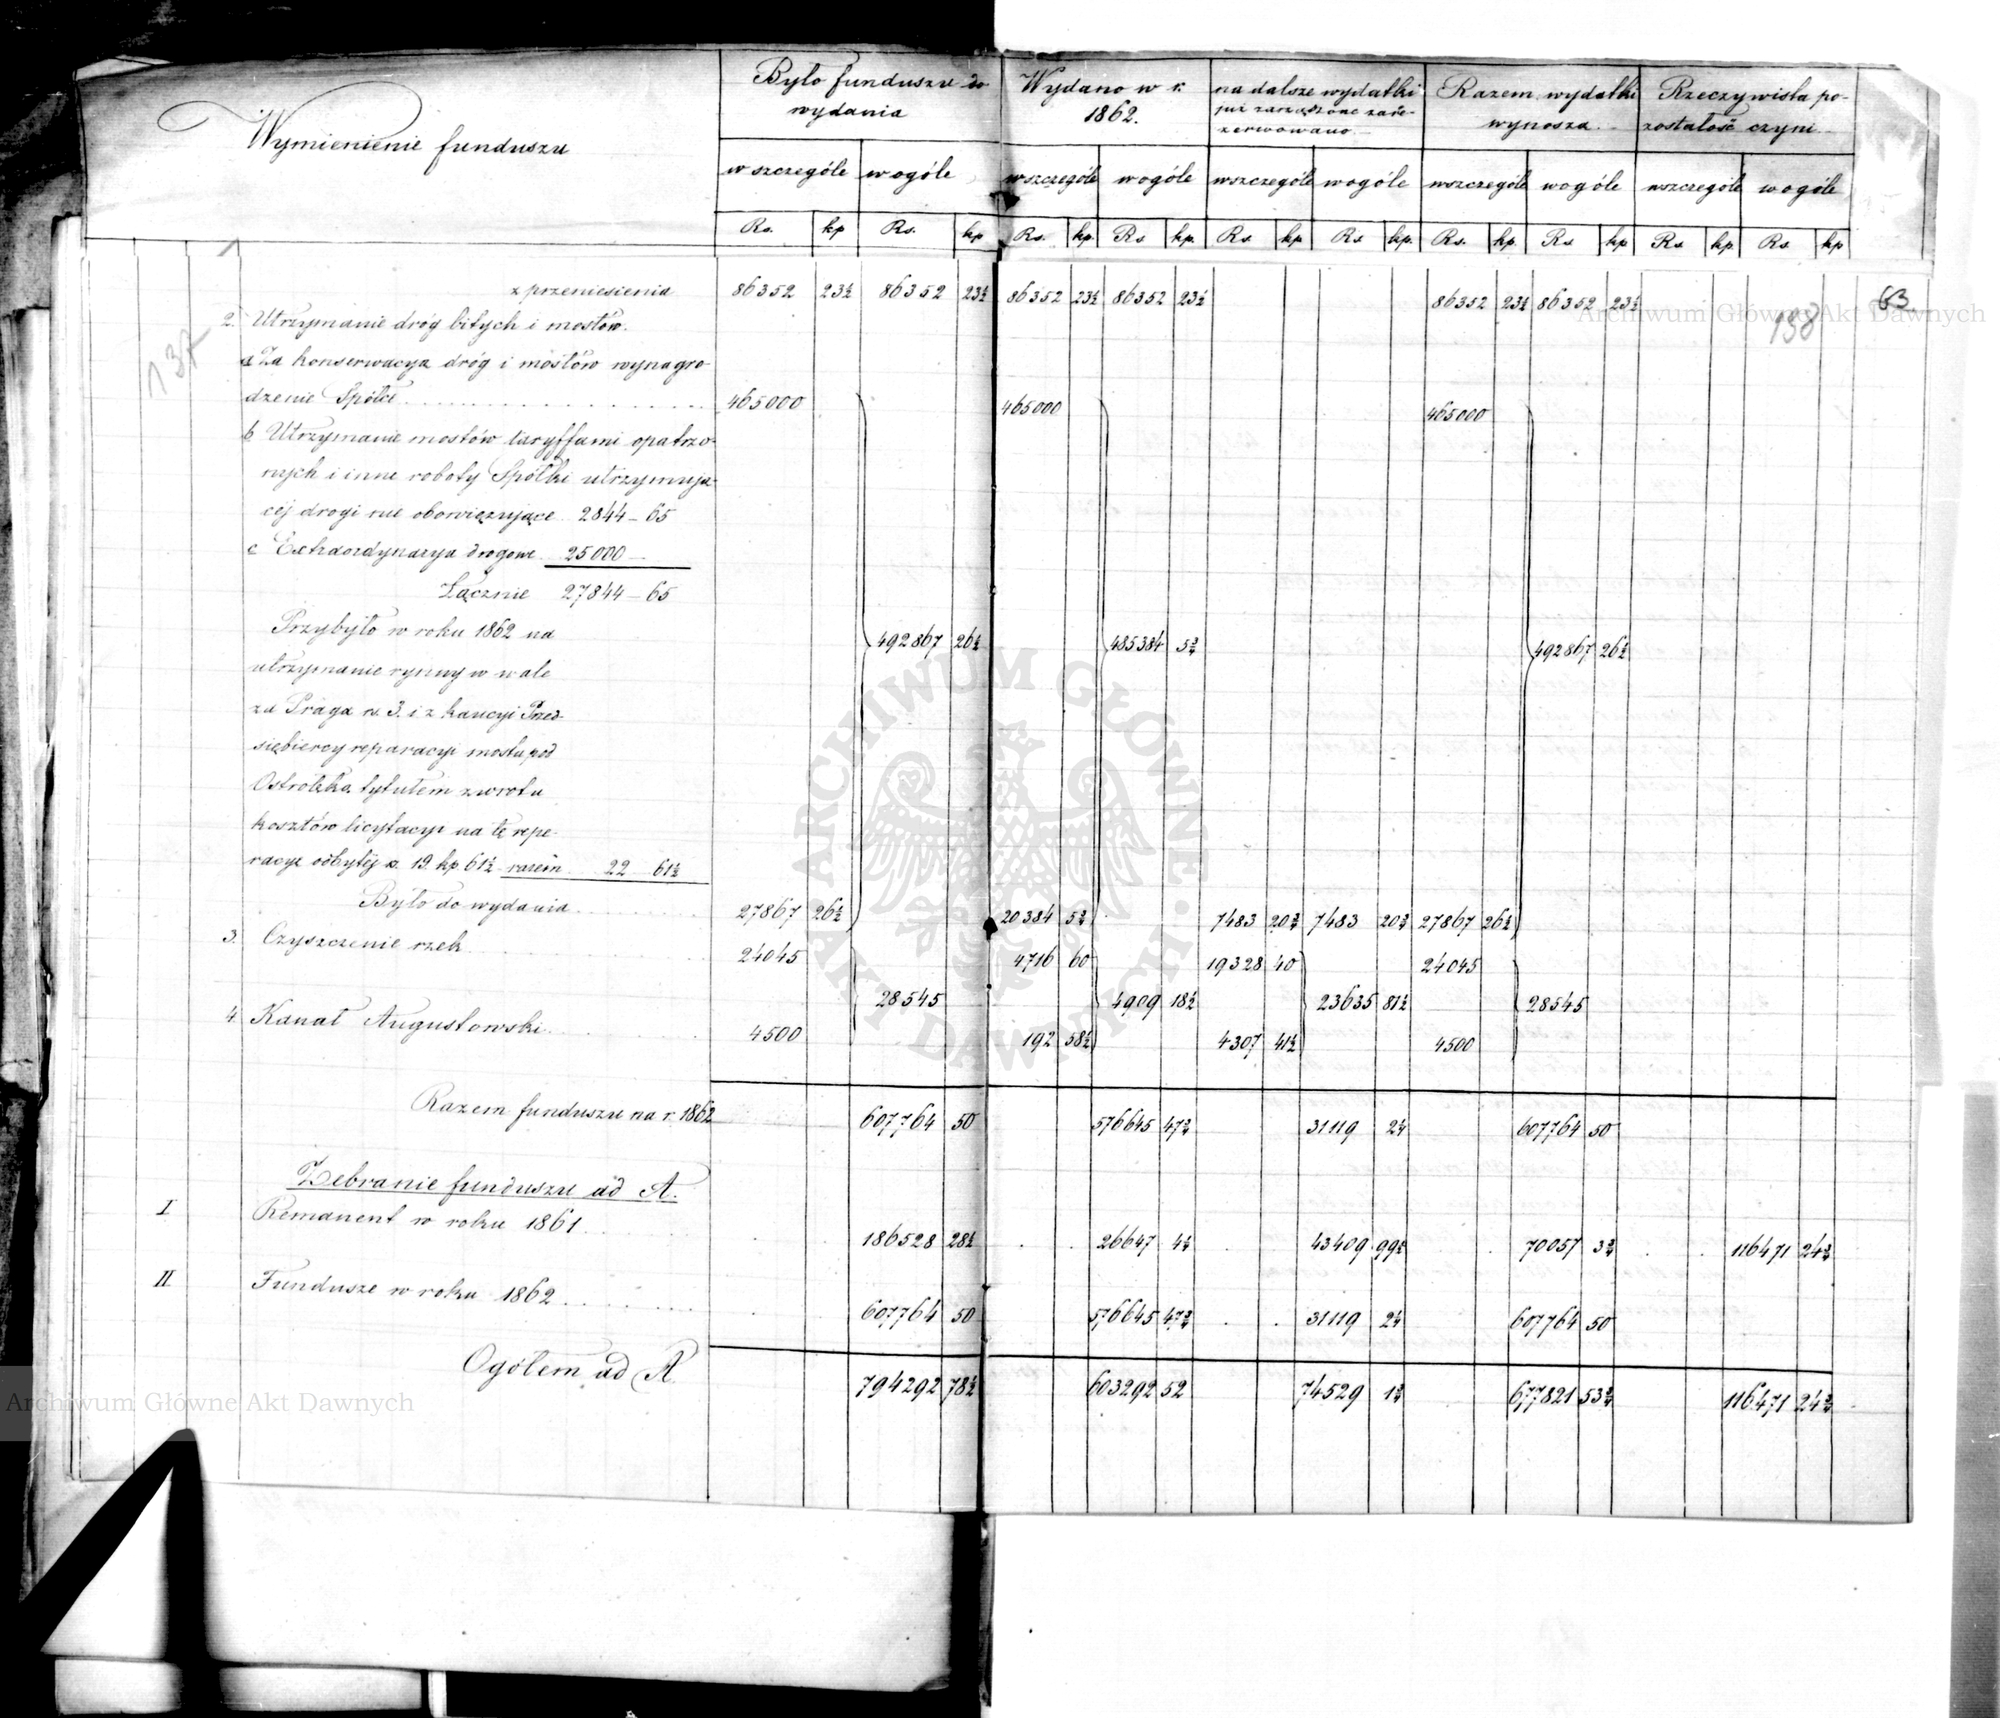 Wymienienie funduszu
Było funduszu do wydania
Wydano w r. 1862.
na dalsze wydatki już zarządzone zare-zerwowano
Razem wydatki wynoszą
Rzeczywista po-zostałość czyni
w szczególe w ogóle w szczególe w ogóle w szczególe w ogóle w szczególe w ogóle w szczególe w ogóle
Rs. kp Rs. kp Rs. kp. Rs kp. Rs kp Rs kp. Rs. kp. Rs kp Rs kp Rs. kp
63
137
138
z przeniesienia 86352 23½ 86352 23½ 86352 23½ 86352 23½ 86352 23½ 86352 23½
2. Utrzymanie dróg bitych i mostów.
a Za konserwacyą dróg i mostów wynagro-
dzenie Spółce 465000 465000 465000
b Utrzymanie mostów taryffami opatrzo-
nych i inne roboty Spółki utrzymują-
cej drogi nie obowięzujące 2844 - 65
c Extraordynarya drogowe 25000 -
Łącznie 27844 - 65
Przybyło w roku 1862 na
492867 26½ 485384 5¾ 492867 26½
utrzymanie rynny w wale
za Pragą rs. 3. i z kaucyi Przed-
siębiercy reparacyi mostu pod
Ostrołęką tytułem zwrotu
kosztów licytacyi na tę repe-
racyę odbytej rs. 19 kp 61½ razem 22 61½
Było do wydania 27867 26½ 20384 5¾ 7483 20¾ 7483 20¾ 27867 26½
3. Czyszczenie rzek 24045 4716 60 19328 40 24045
28545 4909 18½ 23635 81½ 28545
4. Kanał Augustowski 4500 192 58½ 4307 41½ 4500
Razem funduszu na r. 1862 607764 50 576645 47¾ 31119 2¼ 607764 50
Zebranie funduszu ad A.
I Remanent w roku 1861 186528 28½ 26647 4¼ 43409 99½ 70057 3¾ 116471 24¾
II Fundusze w roku 1862 607764 50 576645 47¾ 31119 2¼ 607764 50
Ogółem ad A 794292 78½ 603292 52 74529 1¾ 677821 53¾ 116471 24¾
Archiwum Główne Akt Dawnych
Archiwum Główne Akt Dawnych
ARCHIWUM GŁÓWNE • AKT DAWNYCH •